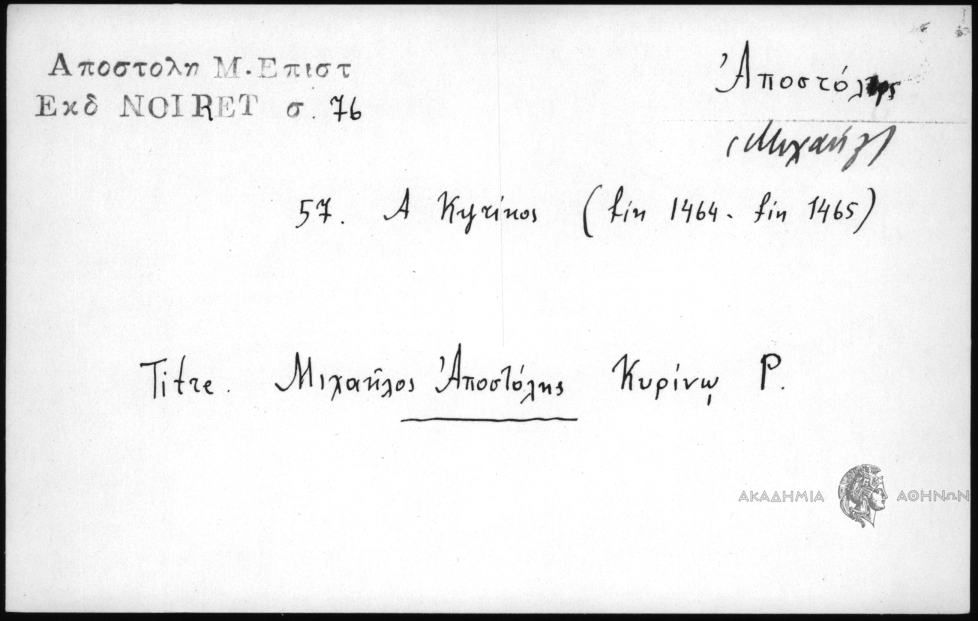 Αποστολη Μ. Επιστ
Εκδ NOIRET σ. 76
Ἀποστόλης
(Μιχαήλ)
57. A Κυρίνος (fin 1464 - fin 1465)
Titre. Μιχαῆλος Ἀποστόλης Κυρίνῳ P.
ΑΚΑΔΗΜΙΑ ΑΘΗΝΩΝ